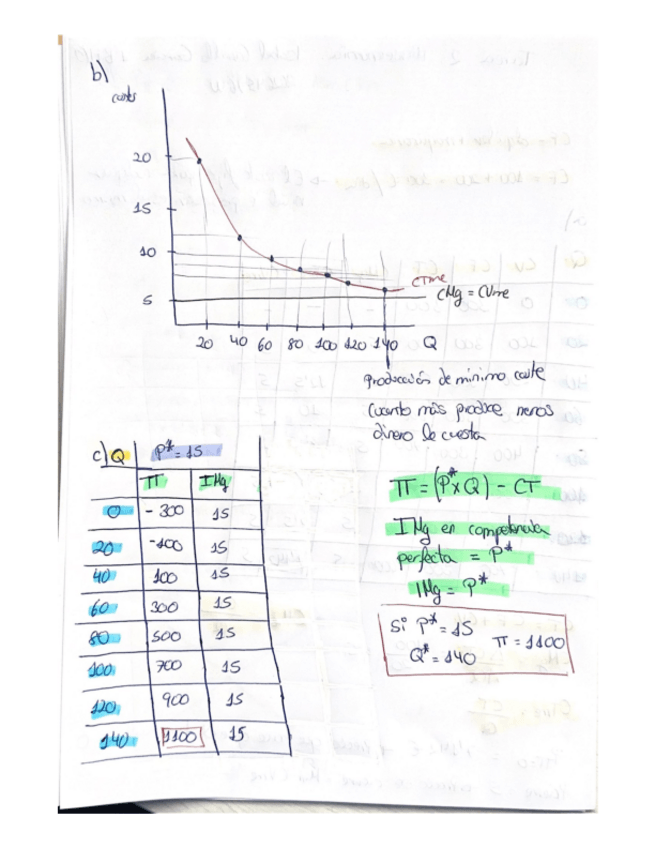 b)
costes
20
15
10
5
CTme
CMg = CVme
20 40 60 80 100 120 140 Q
Producción de mínimo coste
Cuanto más produce menos
dinero le cuesta
c) Q P* = 15
Π IMg
0 - 300 15
20 -100 15
40 100 15
60 300 15
80 500 15
100 700 15
120 900 15
140 1100 15
Π = (P* x Q) - CT
IMg en competencia
perfecta = P*
IMg = P*
Si P* = 15 Π = 1100
Q* = 140